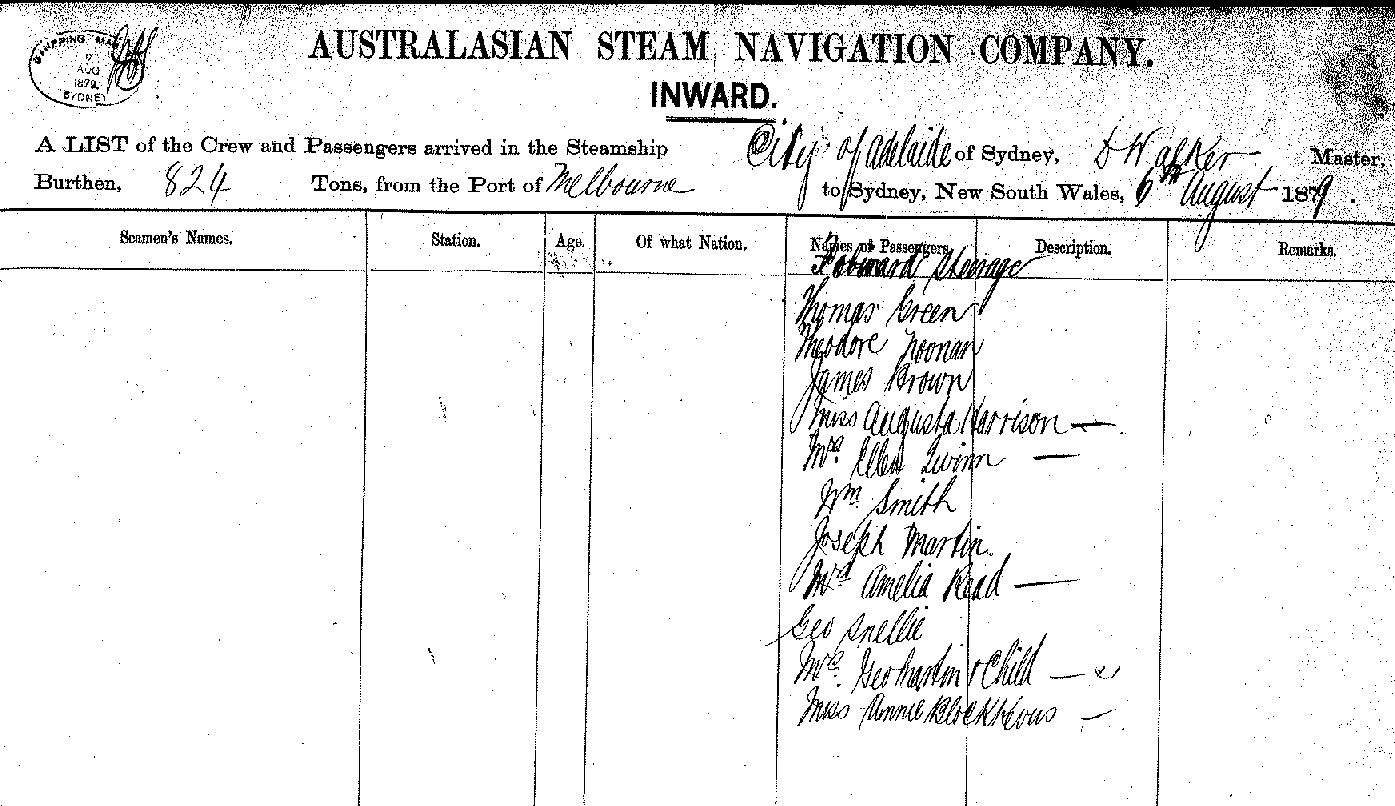 SHIPPING MAS
9
AUG
1879
SYDNEY
AUSTRALASIAN STEAM NAVIGATION COMPANY.
INWARD.
A LIST of the Crew and Passengers arrived in the Steamship City of Adelaide of Sydney, D Walker Master,
Burthen, 824 Tons, from the Port of Melbourne to Sydney, New South Wales, 6th August 1879.
Seamen's Names. Station. Age. Of what Nation. Names of Passengers. Description. Remarks.
Forward Steerage
Thomas Green
Theodore Noonan
James Brown
Miss Augusta Harrison —
Mrs. Ellen Quinn —
Wm. Smith
Joseph Martin.
Mrs Amelia Read —
Geo Snellie
Mrs. Geo Martin & Child —
Miss Annie —